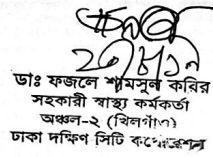 ডাঃ ফজলে শামসুল করির
সহকারী স্বাস্থ্য কর্মকর্তা
অঞ্চল-২ (খিলগাঁও)
ঢাকা দক্ষিণ সিটি কর্পোরেশন